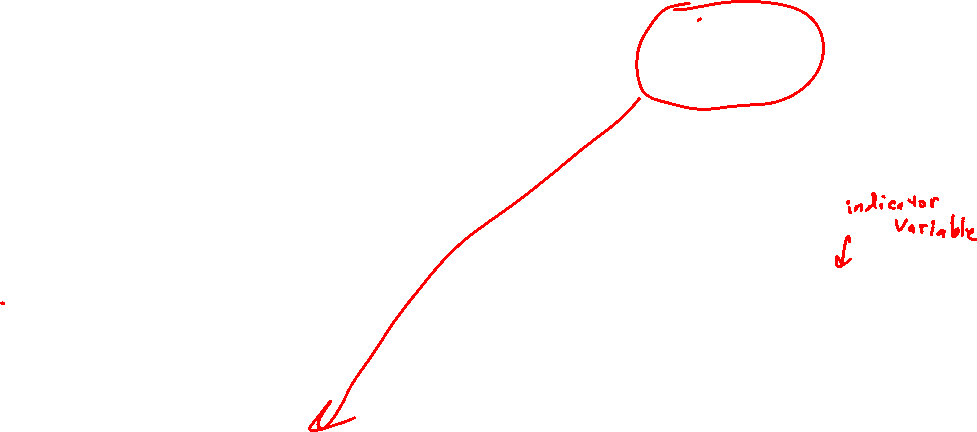 indicator
variable